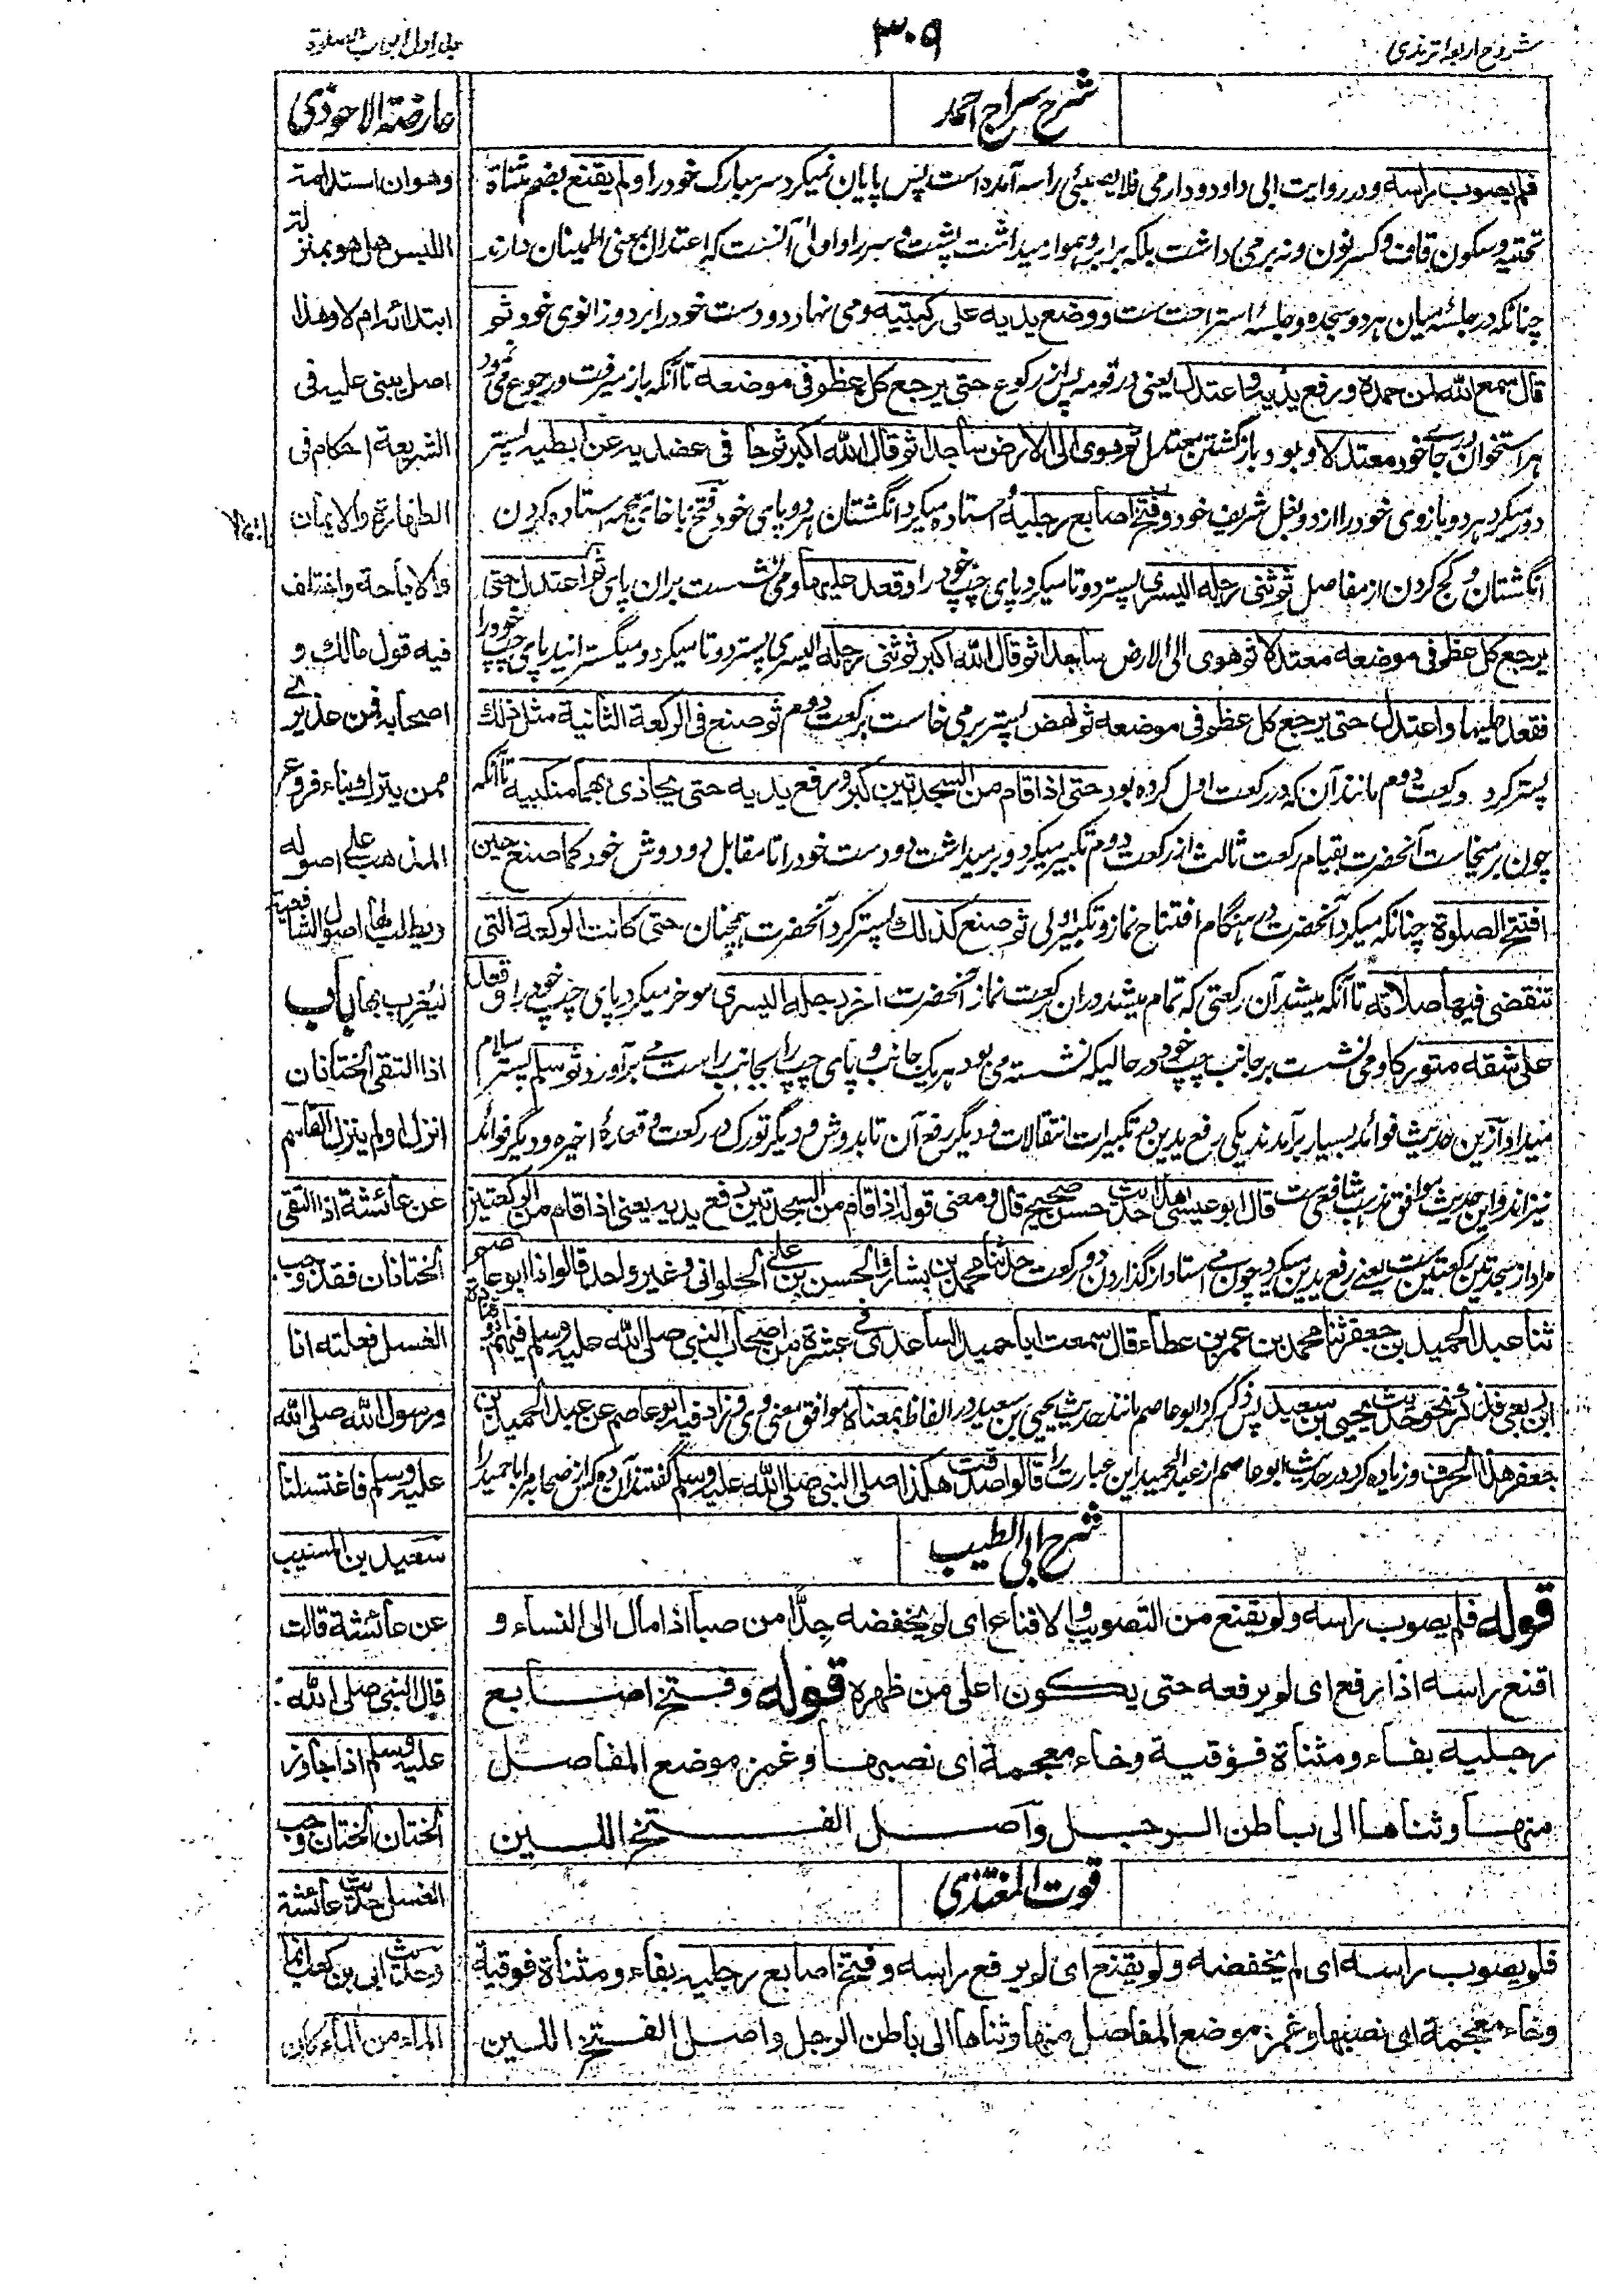 شروح اربعہ ترمذی
۳۰۹
جلد اول ابواب الصلوة
شرح سراج احمد
فلم يصوب راسه ودر روايت ابی داود ودارمی فلا يصبئی راسه آمده است پس پایان نمیکرد سر مبارک خود را ولم يقنع بضم مثناة
تحتیه وسکون قاف وکسر نون ونه بر می داشت بلکه برابر وہموار میداشت پشت وسر را واولی آنست که اعتدال بمعنی اطمینان دارند
چنانکه در جلسهٔ میان ہر دو سجده وجلسهٔ استراحت ست ووضع يديه على ركبتيه ومی نہاد دو دست خود را بر دو زانوی خود ثم
قال سمع الله لمن حمده ورفع يديه واعتدل یعنی در قومه پس از رکوع حتى يرجع كل عظم فی موضعه تا آنکه باز میرفت ورجوع می نمود
ہر استخوان در جای خود معتدلا وبود باز گشتن معتدل ثم هوى الى الارض ساجدا ثم قال الله اكبر ثم جا فی عضديه عن ابطيه پستر
دور میکرد ہر دو بازوی خود را از دو بغل شریف خود وفتخ اصابع رجليه واستاده میکرد انگشتان ہر دو پای خود فتخ با خای معجمه استاده کردن
انگشتان وکج کردن از مفاصل ثم ثنى رجله اليسرى پستر دوتا میکرد پای چپ خود را وقعد عليها ومی نشست بران پای ثم اعتدل حتى
يرجع كل عظم فی موضعه معتدلا ثم هوى الى الارض ساجدا ثم قال الله اكبر ثم ثنى رجله اليسرى پستر دوتا میکرد ومیگسترانید پای چپ خود را
فقعد عليها واعتدل حتى يرجع كل عظم فی موضعه ثم نهض پستر بر می خاست برکعت دوم ثم صنع فی الركعة الثانية مثل ذلك
پستر کرد ورکعت دوم مانند آن که در رکعت اول کرده بود حتى اذا قام من السجدتين كبر ورفع يديه حتى يحاذی بهما منكبيه تا آنکه
چون بر میخاست آنحضرت بقیام رکعت ثالث از رکعت دوم تکبیر میکرد وبر میداشت دو دست خود را تا مقابل دو دوش خود كما صنع حين
افتتح الصلوة چنانکه میکرد آنحضرت در ہنگام افتتاح نماز وتکبیر اولی ثم صنع كذلك پستر کرد آنحضرت ہمچنان حتى كانت الركعة التی
تنقضی فيها صلاته تا آنکه میشد آن رکعتی که تمام میشد دران رکعت نماز آنحضرت اخر رجله اليسرى موخر میکرد پای چپ خود را وقعد
على شقه متوركا ومی نشست بر جانب چپ خود در حالیکه نشسته می بود بر یک جانب وپای چپ را بجانب راست می بر آورد ثم سلم پستر سلام
میداد وازین حدیث فوائد بسیار بر آمدند یکی رفع یدین در تکبیرات انتقالات ودیگر رفع آن تا بدوش ودیگر تورک در رکعت وقعدهٔ اخیره ودیگر فوائد
نیز اند واین حدیث موافق مذہب شافعی ست قال ابو عيسى هذا حديث حسن صحيح قال ومعنى قوله اذا قام من السجدتين رفع يديه يعنی اذا قام من الركعتين
مراد از سجدتین رکعتین ست یعنی رفع یدین میکرد چون می استاد از گذاردن دو رکعت حدثنا محمد بن بشار والحسن بن على الحلوانی وغير واحد قالوا اذا ابو عاصم
ثنا عبد الحميد بن جعفر ثنا محمد بن عمرو بن عطاء قال سمعت ابا حميد الساعدی فی عشرة من اصحاب النبی صلى الله عليه وسلم فيهم ابو قتادة
ابن ربعی فذكر نحو حديث يحيى بن سعيد پس ذکر کرد ابو عاصم مانند حدیث یحیی بن سعید در الفاظ بمعناه موافق معنی وی وزاد فيه ابو عاصم عن عبد الحميد بن
جعفر هذا الحرف وزیاده کرد در حدیث ابو عاصم از عبد الحمید این عبارت را قالوا صدقت هكذا صلى النبی صلى الله عليه وسلم گفتند آن ده کس از صحابه مر ابا حمید را
شرح ابی الطیب
قوله فلم يصوب راسه ولم يقنع من التصويب والاقناع ای لم يخفضه جدًّا من صبا اذا مال الى النساء و
اقنع راسه اذا رفع ای لم يرفعه حتى يكون اعلى من ظهره قوله وفتخ اصابع
رجليه بفاء ومثناة فوقية وخاء معجمة ای نصبها وغمز موضع المفاصل
منها وثناها الى باطن الرجل واصل الفتخ اللين
قوت المغتذی
فلم يصوب راسه ای لم يخفضه ولم يقنع ای لم يرفع راسه وفتخ اصابع رجليه بفاء ومثناة فوقية
وخاء معجمة ای نصبها وغمز موضع المفاصل منها وثناها الى باطن الرجل واصل الفتخ اللين
عارضة الاحوذی
وهو ان استدامة
اللبس هل هو بمنزلة
ابتدائه ام لا وهذا
اصل يبنى عليه فی
الشريعة احكام فی
الطهارة والايمان
والاباحة واختلف
فيه قول مالك و
اصحابه فمن عذيری
ممن يترك بناء فروع
المذهب على اصوله
ويطلب لها اصول الشافعية
فيغرب بها باب
اذا التقى الختانان
انزل او لم ينزل القاسم
عن عائشة اذا التقى
الختانان فقد وجب
الغسل فعلته انا
ورسول الله صلى الله
عليه وسلم فاغتسلنا
سعيد بن المسيب
عن عائشة قالت
قال النبی صلى الله
عليه وسلم اذا جاوز
الختان الختان وجب
الغسل حديث عائشة
وحديث ابی بن كعب انما
الماء من الماء كان